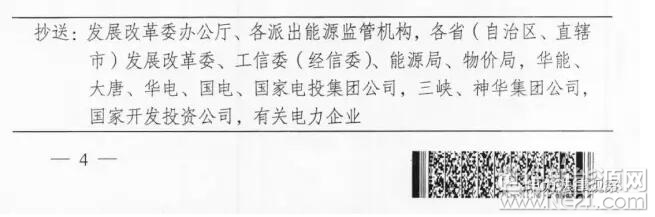 抄送：发展改革委办公厅、各派出能源监管机构，各省（自治区、直辖
市）发展改革委、工信委（经信委）、能源局、物价局，华能、
大唐、华电、国电、国家电投集团公司，三峡、神华集团公司，
国家开发投资公司，有关电力企业
— 4 —